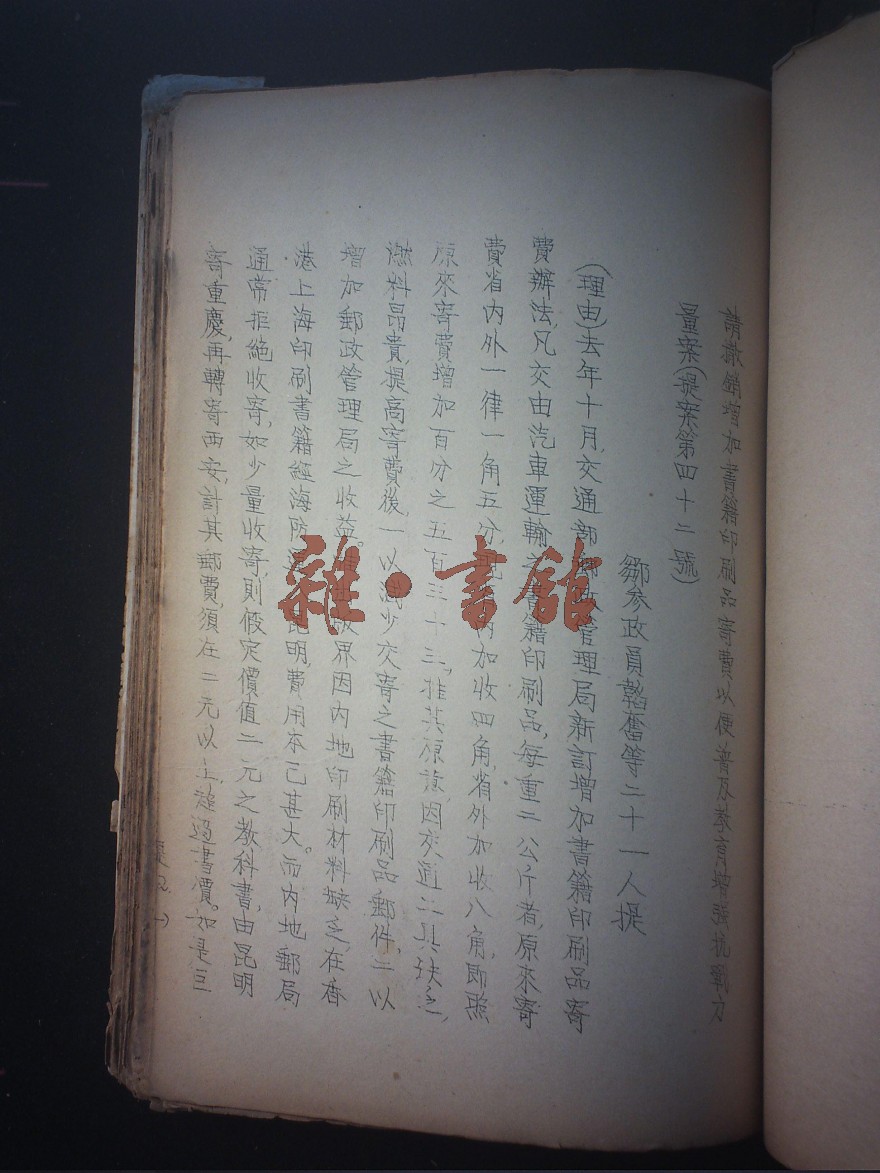 請撤銷增加書籍印刷品寄費以便普及教育增强抗戰力
量案(提案第四十二號)
鄒參政員韜奮等二十一人提
(理由)去年十月,交通部郵政管理局新訂增加書籍印刷品寄
費辦法,凡交由汽車運輸之書籍印刷品,每重二公斤者,原來寄
費省内外一律一角五分,内加收四角,省外加收八角,即照
原來寄費增加百分之五百三十三,推其原意,因交通工具缺乏,
燃料昂貴,提高寄費後,一以減少交寄之書籍印刷品郵件,二以
增加郵政管理局之收益。界因内地印刷材料缺乏,在香
港上海印刷書籍經海防昆明,費用本已甚大。而内地郵局
通常拒絕收寄,如少量收寄,則假定價值二元之教科書,由昆明
寄重慶,再轉寄西安,計其郵費,須在二元以上,超過書價。如是巨
雜·書館